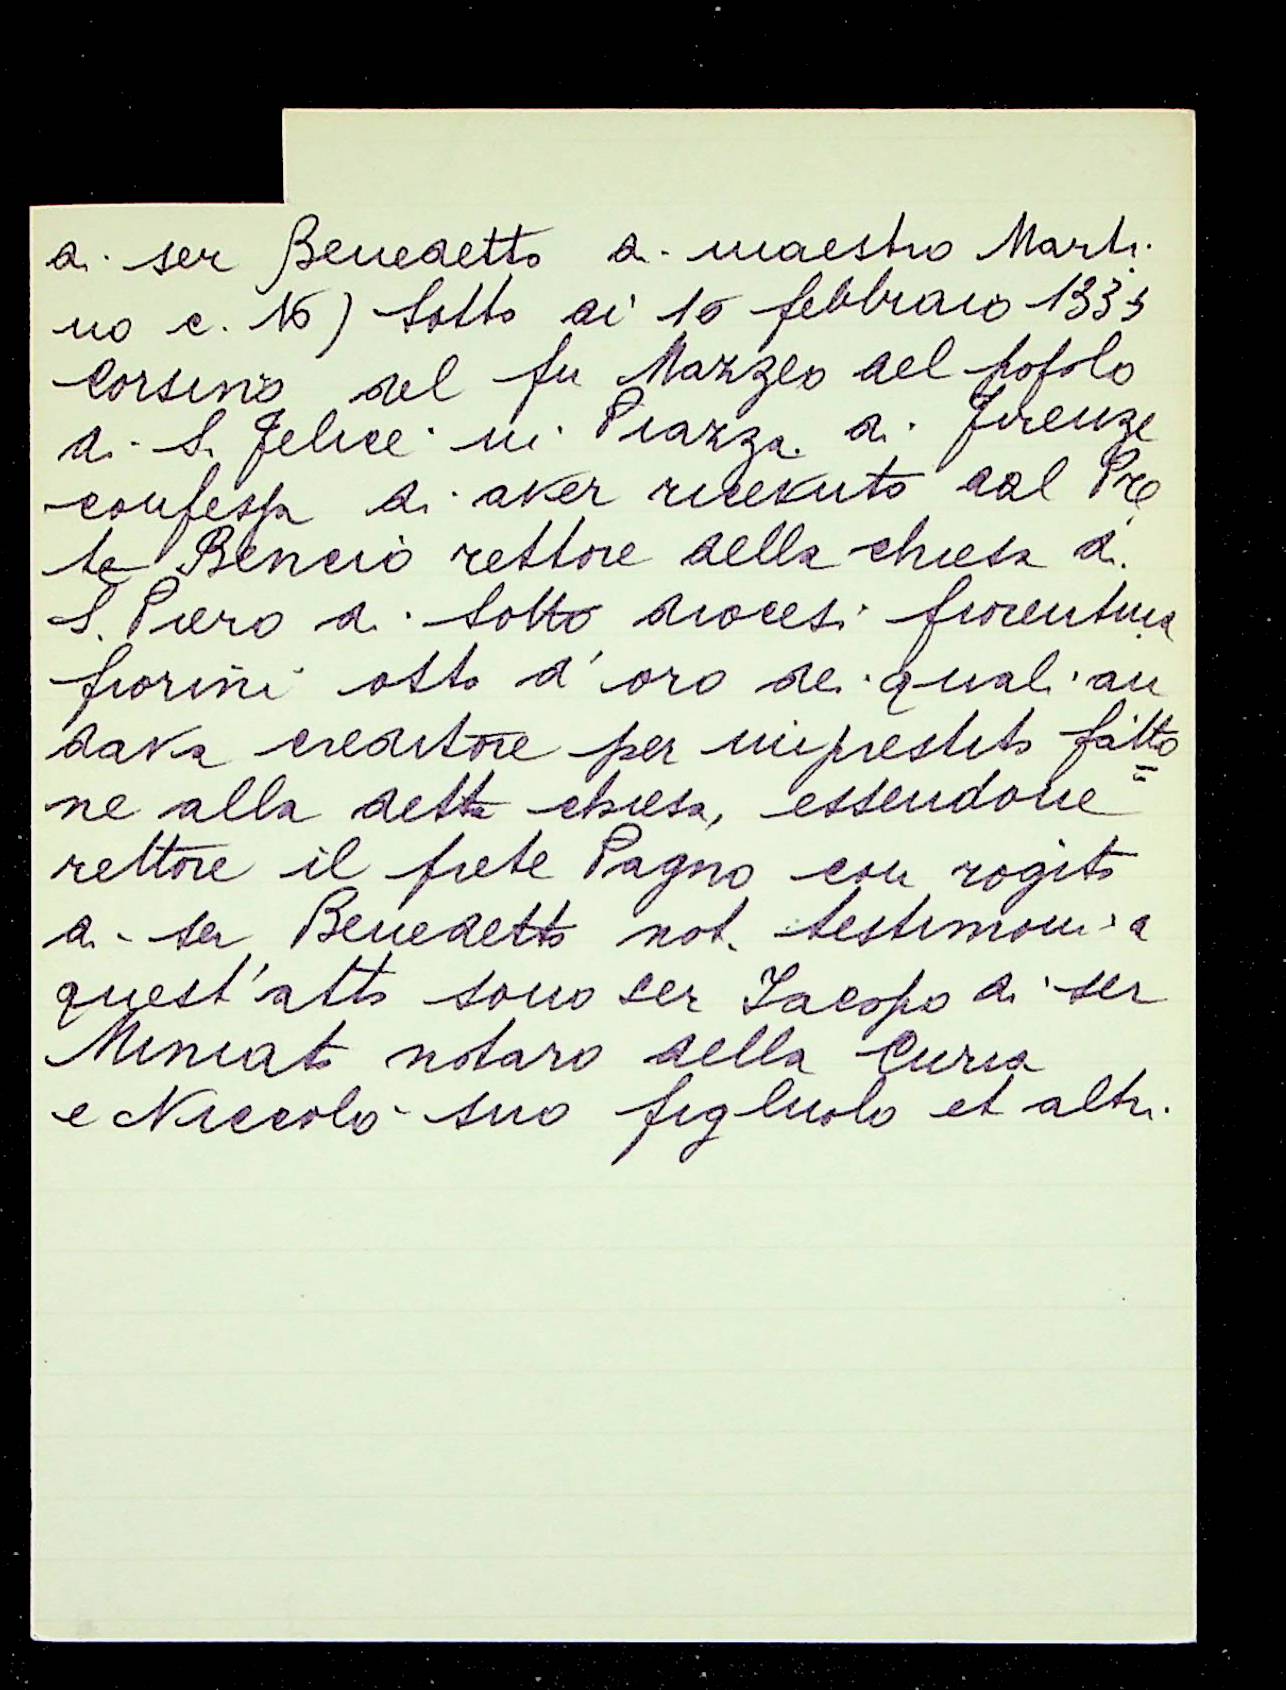 di ser Benedetto di maestro Marti
no c. 16) Sotto di 16 febbraio 1335
Corsino del fu Mazzeo del popolo
di S. Felice in Piazza di Firenze
confessa di aver ricevuto dal Pre
te Bencio rettore della chiesa di
S. Piero di Sotto diocesi fiorentina
fiorini otto d'oro dei quali an
dava creditore per imprestito fatto=
ne alla detta chiesa, essendone
rettore il prete Pagno con rogito
di ser Benedetto not. testimoni a
quest'atto sono ser Iacopo di ser
Miniato notaro della Curia
e Niccolò suo figliuolo et altri.